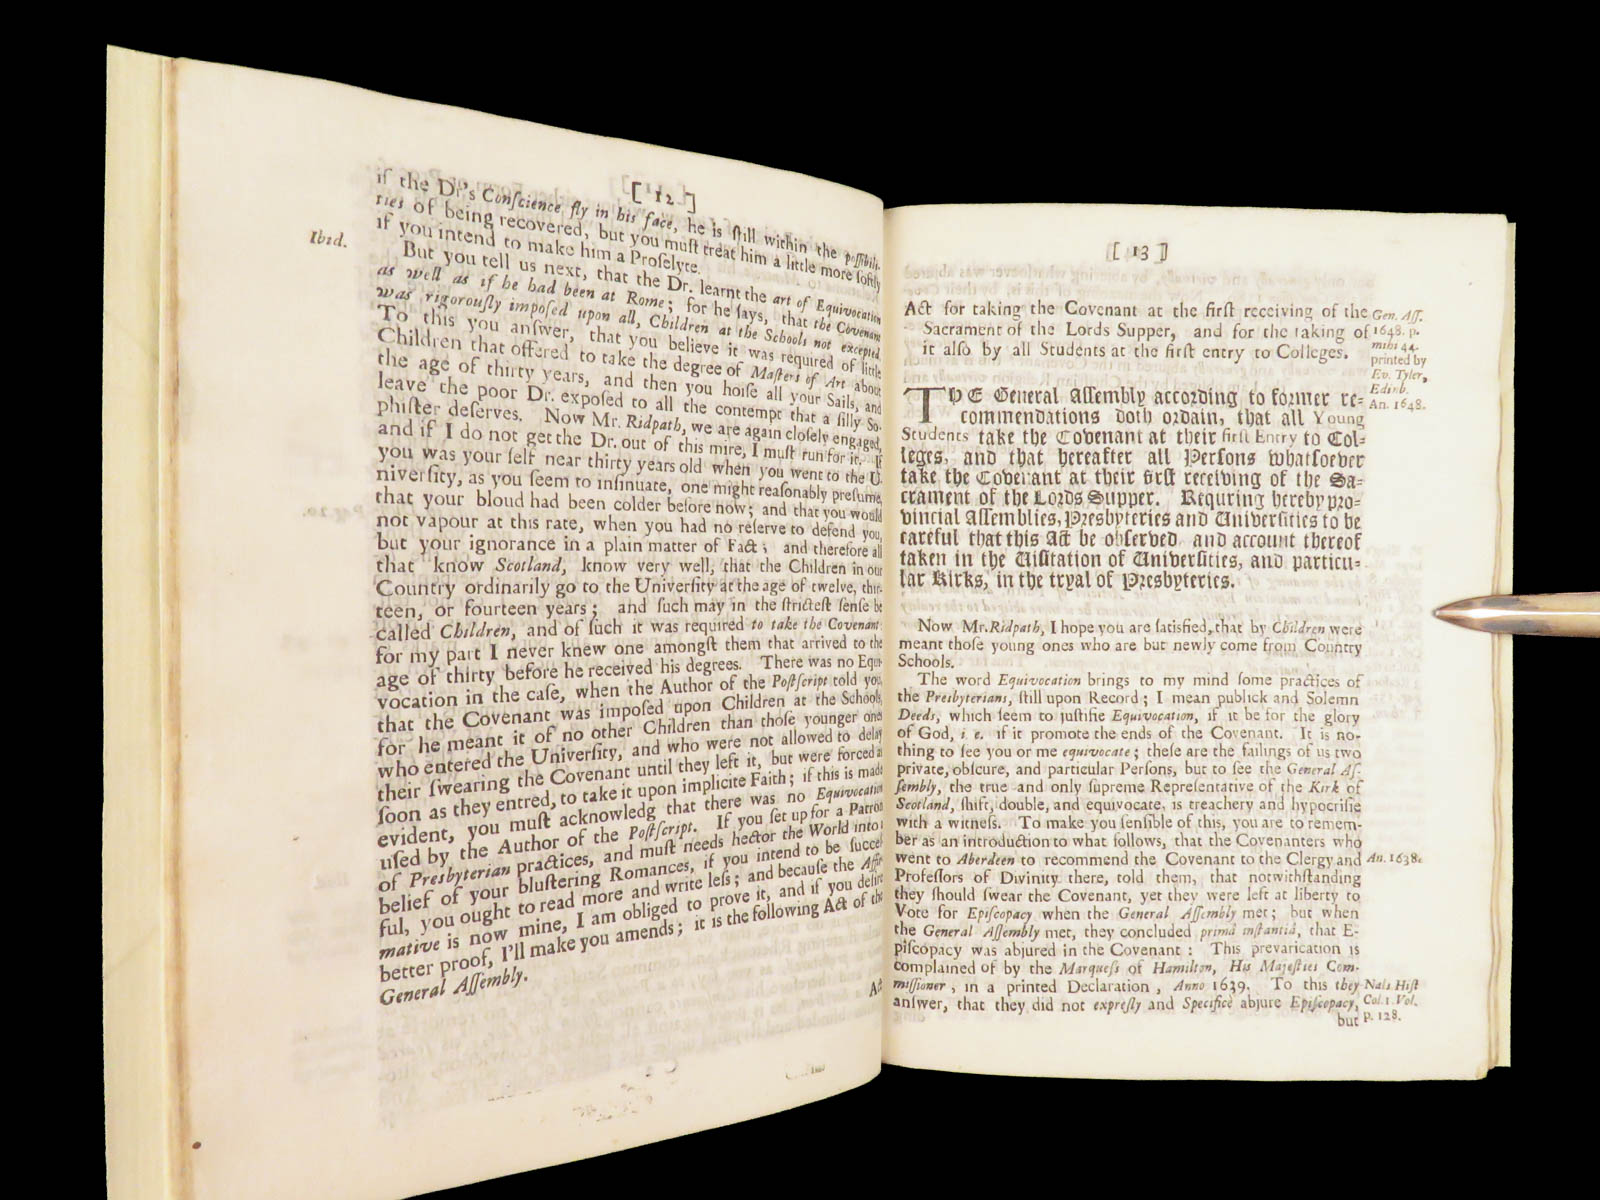 [ 12 ]
if the Dr's Conſcience fly in his face, he is ſtill within the poſſibili-
ties of being recovered, but you muſt treat him a little more ſoftly
if you intend to make him a Proſelyte.
Ibid.
But you tell us next, that the Dr. learnt the art of Equivocation
as well as if he had been at Rome; for he ſays, that the Covenant
was rigorouſly impoſed upon all, Children at the Schools not excepted.
To this you anſwer, that you believe it was required of little
Children that offered to take the degree of Maſters of Art about
the age of thirty years, and then you hoiſe all your Sails, and
leave the poor Dr. expoſed to all the contempt that a ſilly So-
phiſter deſerves. Now Mr. Ridpath, we are again cloſely engaged,
and if I do not get the Dr. out of this mire, I muſt run for it. If
you was your ſelf near thirty years old when you went to the U-
niverſity, as you ſeem to inſinuate, one might reaſonably preſume,
that your bloud had been colder before now; and that you would
not vapour at this rate, when you had no reſerve to defend you,
but your ignorance in a plain matter of Fact; and therefore all
that know Scotland, know very well, that the Children in our
Country ordinarily go to the Univerſity at the age of twelve, thir-
teen, or fourteen years; and ſuch may in the ſtricteſt ſenſe be
called Children, and of ſuch it was required to take the Covenant
for my part I never knew one amongſt them that arrived to the
age of thirty before he received his degrees. There was no Equi-
vocation in the caſe, when the Author of the Poſtſcript told you,
that the Covenant was impoſed upon Children at the Schools,
for he meant it of no other Children than thoſe younger ones
who entered the Univerſity, and who were not allowed to delay
their ſwearing the Covenant until they left it, but were forced as
ſoon as they entred, to take it upon implicite Faith; if this is made
evident, you muſt acknowledg that there was no Equivocation
uſed by the Author of the Poſtſcript. If you ſet up for a Patron
of Presbyterian practices, and muſt needs hector the World into
belief of your bluſtering Romances, if you intend to be ſucceſ
ful, you ought to read more and write leſs; and becauſe the Affir
mative is now mine, I am obliged to prove it, and if you deſire
better proof, I'll make you amends; it is the following Act of the
General Aſſembly.
Act
[ 13 ]
Act for taking the Covenant at the firſt receiving of the
Sacrament of the Lords Supper, and for the taking of
it alſo by all Students at the firſt entry to Colleges.
Gen. Aſſ.
1648. p.
mihi 44.
printed by
Ev. Tyler,
Edinb.
An. 1648.
THE General Aſſembly according to former re-
commendations doth ordain, that all Young
Students take the Covenant at their firſt Entry to Col-
leges, and that hereafter all Perſons whatſoever
take the Covenant at their firſt receiving of the Sa-
crament of the Lords Supper. Requring hereby pro-
vincial Aſſemblies, Presbyteries and Univerſities to be
careful that this Act be obſerved, and account thereof
taken in the Viſitation of Univerſities, and particu-
lar Kirks, in the tryal of Presbyteries.
Now Mr. Ridpath, I hope you are ſatisfied, that by Children were
meant thoſe young ones who are but newly come from Country
Schools.
The word Equivocation brings to my mind ſome practices of
the Presbyterians, ſtill upon Record; I mean publick and Solemn
Deeds, which ſeem to juſtifie Equivocation, if it be for the glory
of God, i. e. if it promote the ends of the Covenant. It is no-
thing to ſee you or me equivocate; theſe are the failings of us two
private, obſcure, and particular Perſons, but to ſee the General Aſ-
ſembly, the true and only ſupreme Repreſentative of the Kirk of
Scotland, ſhift, double, and equivocate, is treachery and hypocriſie
with a witneſs. To make you ſenſible of this, you are to remem-
ber as an introduction to what follows, that the Covenanters who
went to Aberdeen to recommend the Covenant to the Clergy and
An. 1638.
Profeſſors of Divinity there, told them, that notwithſtanding
they ſhould ſwear the Covenant, yet they were left at liberty to
Vote for Epiſcopacy when the General Aſſembly met; but when
the General Aſſembly met, they concluded primâ inſtantiâ, that E-
piſcopacy was abjured in the Covenant: This prevarication is
complained of by the Marqueſs of Hamilton, His Majeſties Com-
miſſioner, in a printed Declaration, Anno 1639. To this they
anſwer, that they did not expreſly and Specificè abjure Epiſcopacy,
but
Nals Hiſt
Col. 1. Vol.
p. 128.